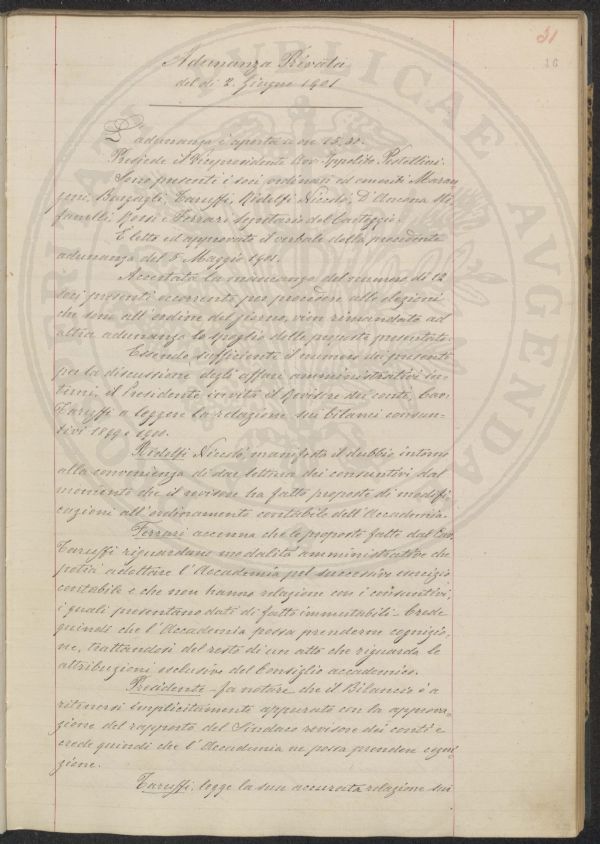 31
16
Adunanza Privata
del dì 2. Giugno 1901
L'adunanza è aperta a ore 15,30.
Presiede il Vicepresidente Cav. Ippolito Pestellini.
Sono presenti i soci ordinari ed emeriti Maran
goni, Bargagli, Taruffi, Ridolfi Niccolò, D'Ancona, Ste
fanelli, Rossi e Ferrari Segretario del Carteggio.
È letto ed approvato il verbale della precedente
adunanza del 5 Maggio 1901.
Accertata la mancanza del numero di 12
soci presenti occorrente per procedere alle elezioni
che sono all'ordine del giorno, vien rimandato ad
altra adunanza lo spoglio delle proposte presentate.
Essendo sufficiente il numero dei presenti
per la discussione degli affari amministrativi in-
terni, il Presidente invita il Revisore dei conti, Cav.
Taruffi a leggere la relazione sui bilanci consun-
tivi 1899 e 1900.
Ridolfi Niccolò, manifesta il dubbio intorno
alla convenienza di dar lettura dei consuntivi dal
momento che il revisore ha fatto proposte di modifi-
cazioni all'ordinamento contabile dell'Accademia.
Ferrari accenna che le proposte fatte dal Cav.
Taruffi riguardano modalità amministrative che
potrà adottare l'Accademia pel successivo esercizio
contabile e che non hanno relazione con i consuntivi,
i quali presentano dati di fatto immutabili. Crede
quindi che l'Accademia possa prenderne cognizio-
ne, trattandosi del resto di un atto che riguarda le
attribuzioni esclusive del Consiglio accademico.
Presidente - fa notare che il Bilancio è a
ritenersi implicitamente appurato con la approva-
zione del rapporto del Sindaco revisore dei conti e
crede quindi che l'Accademia ne possa prendere cogni-
zione.
Taruffi, legge la sua accurata relazione sui